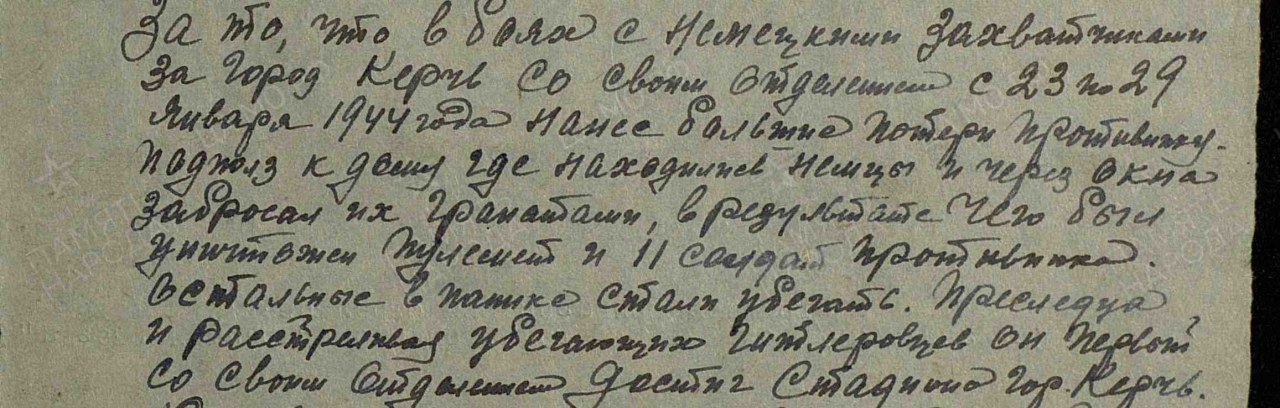 За то, что в боях с немецкими захватчиками
за город Керчь со своим отделением с 23 по 29
января 1944 года нанес большие потери противнику.
Подполз к дому где находились немцы и через окна
забросал их гранатами, в результате чего был
уничтожен пулемет и 11 солдат противника.
Остальные в панике стали убегать. Преследуя
и расстреливая убегающих гитлеровцев он первый
со своим отделением достиг стадиона гор. Керчь.